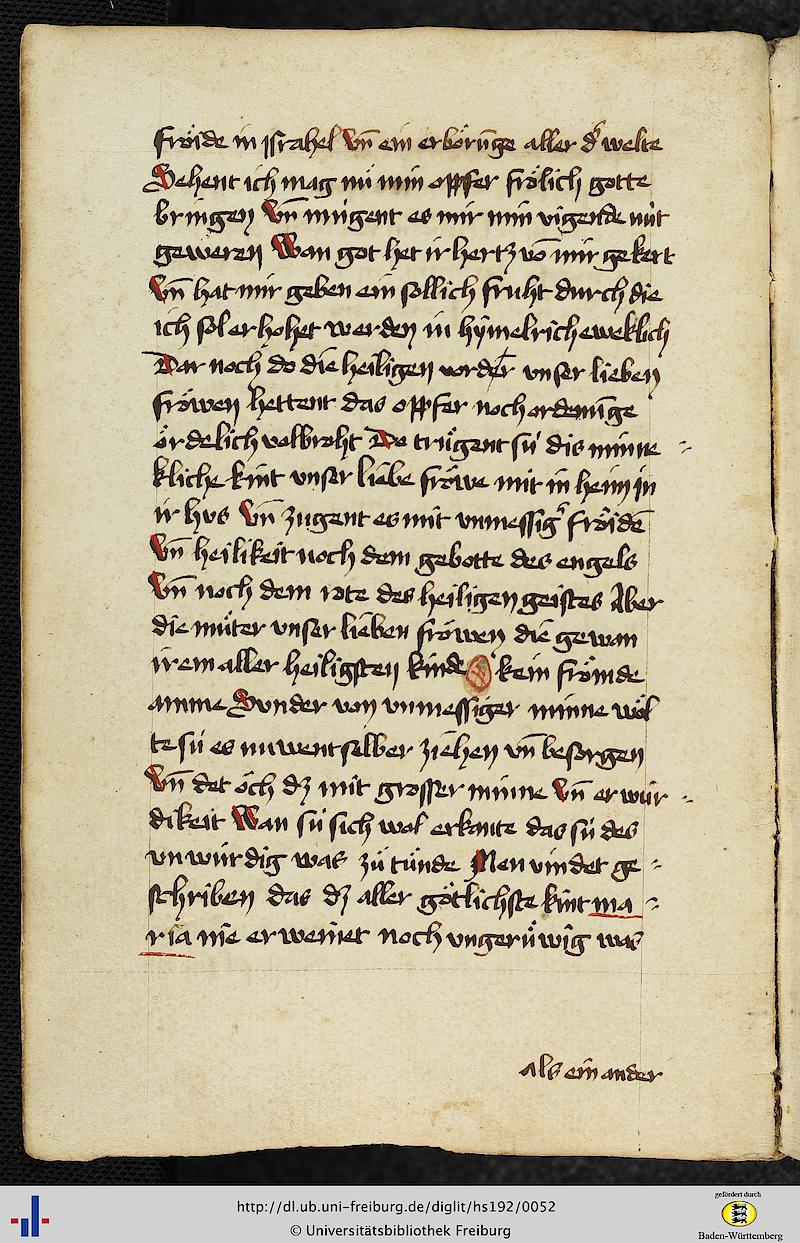 fröide in jsrahel Vn̄ ein erbörunge aller dˀ welte
Sehent ich mag nu̍ min opffer frölich gotte
bringen Vn̄ mu̍gent es mir min vigende nu̍t
geweren Wan got het ir hertz vō mir gekert
Vn̄ hat mir geben ein sollich fruht durch die
ich sol erhohet werden in hẏmelrich eweklich
Dar noch do die heiligen vorder unser lieben
fröwen hettent das opffer noch ordenūge
ördelich volbroht Do tru̍gent su̍ dis minne
kliche kint unser liebe fröwe mit in heim jn
ir hus Vn̄ zugent es mit unmessigˀ fröidē
Vn̄ heilikeit noch dem gebotte des engels
Vn̄ noch dem rate des heiligen geistes Aber
die mu̍ter unser lieben fröwen die gewan
irem aller heiligsten kinde kein frömde
amme Sunder von unmessiger minne wöl
te su̍ es nuwent selber ziehen vn̄ besorgen
Vn̄ det öch dz mit grosser minne Vn̄ erwur
dikeit Wan su̍ sich wol erkante das su̍ des
unwu̍rdig was zu̍ tu̍nde Men vindet ge
schriben das dz aller götlichste kint ma
ria nie erweinet noch ungeru̍wig was
als ein ander
http://dl.ub.uni-freiburg.de/diglit/hs192/0052
© Universitätsbibliothek Freiburg
gefördert durch
Baden-Württemberg